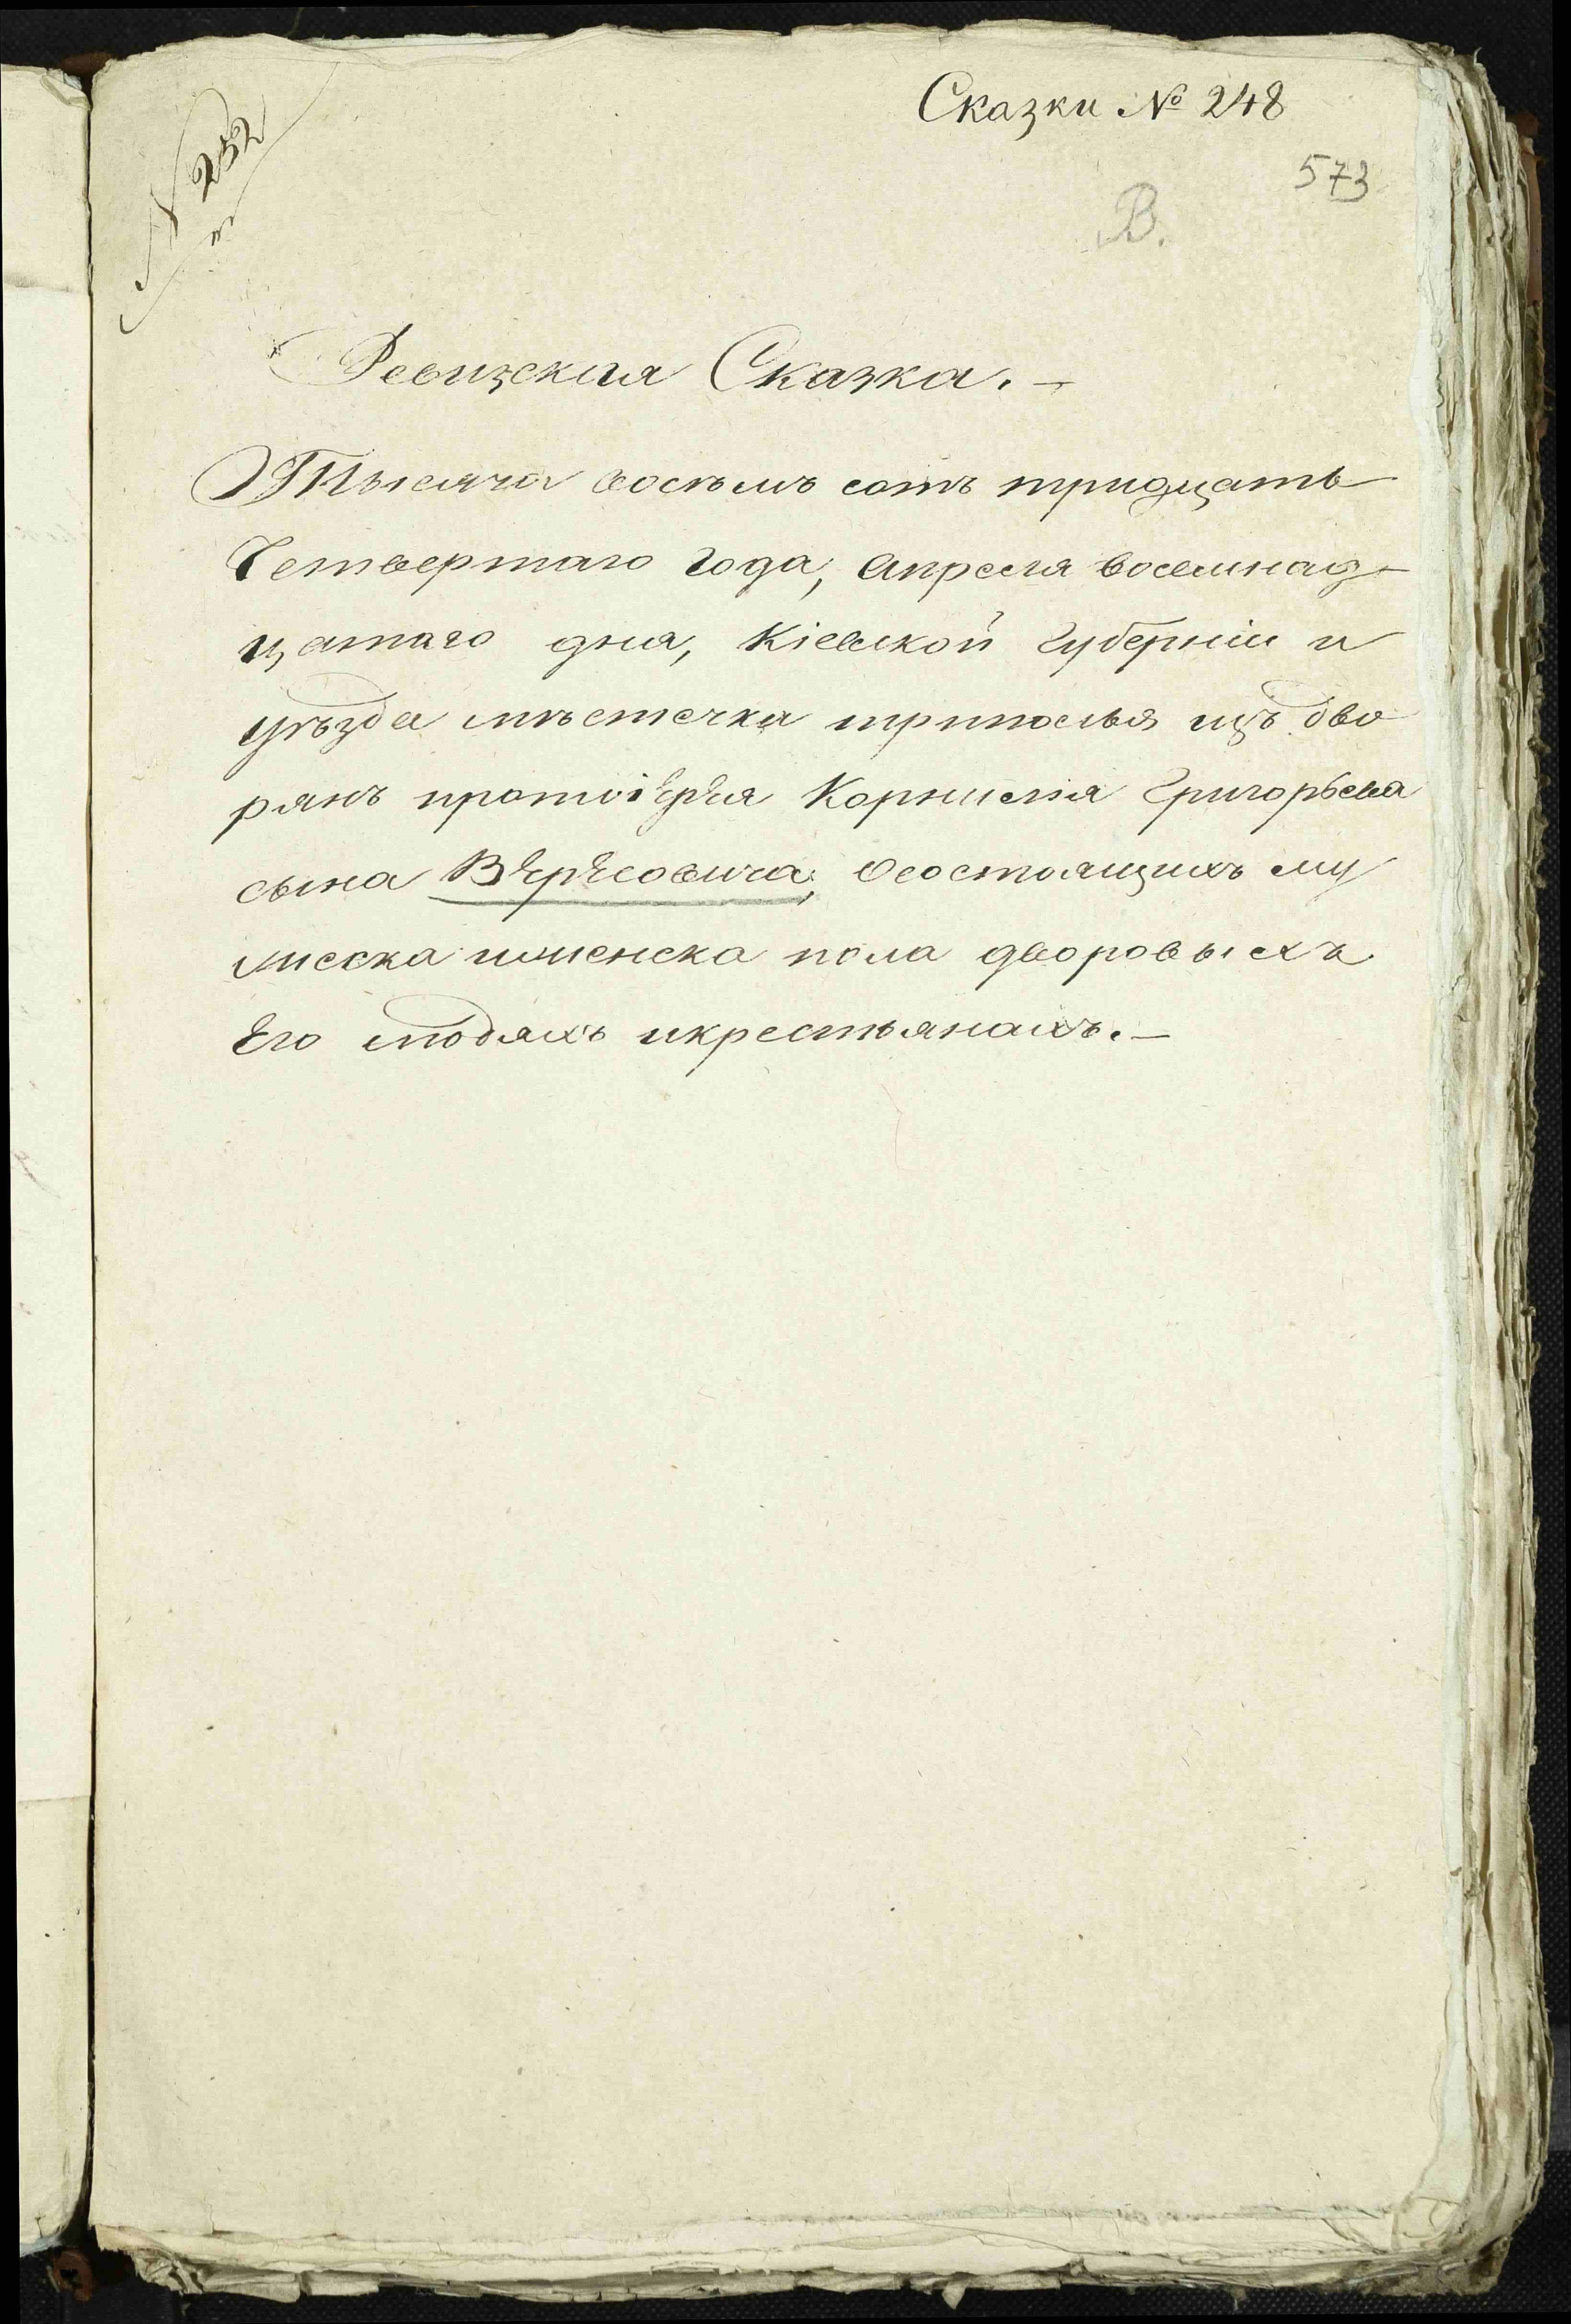 Сказки № 248
№ 252
573
В.
Ревизская Сказка. —
Тысяча восемъ сотъ тридцать
Четвертаго года, апреля восемнад-
цатаго дня, Кіевской губерніи и
уѣзда мѣстечка триполья изъ дво
рянъ протоіерея Корнилія Григорьева
сына Вересовича, Осостоящихъ му
жеска иженска пола дворовыхъ
Его людяхъ икрестьянахъ. —